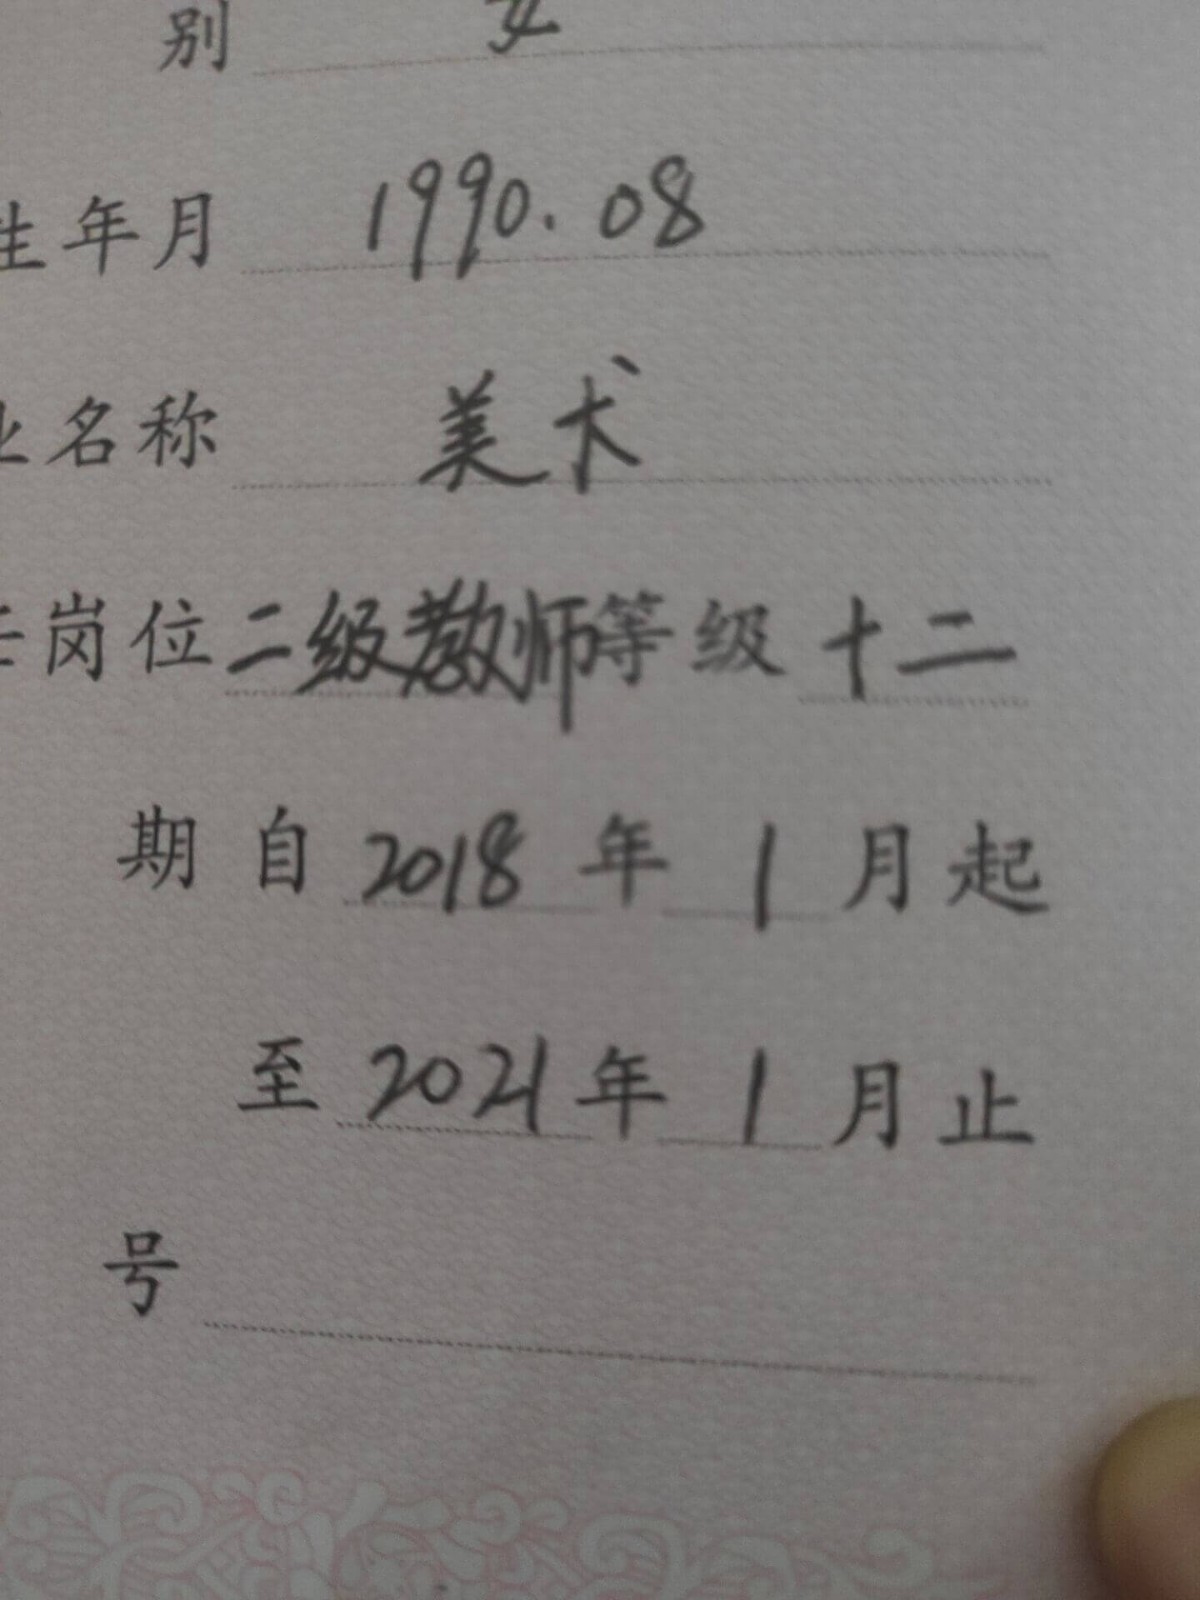 别 女
生年月 1990.08
业名称 美术
任岗位 二级教师 等级 十二
期 自 2018 年 1 月起
至 2021 年 1 月止
号